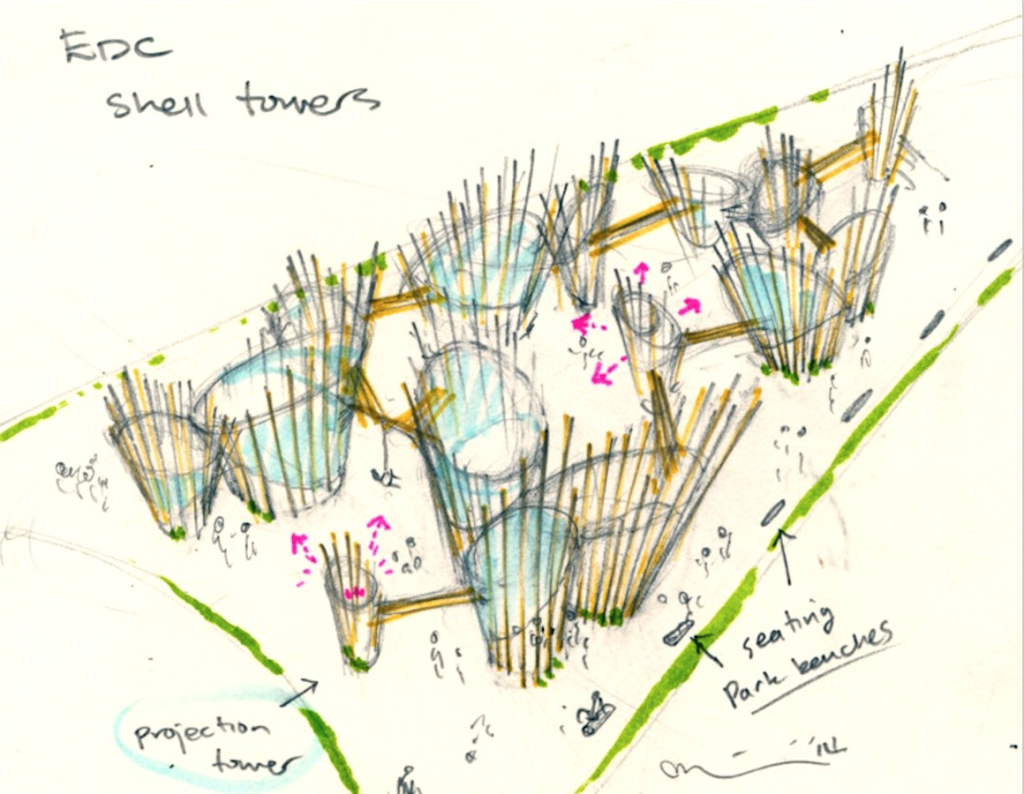 EDC
shell towers
seating
Park benches
projection
tower
'14